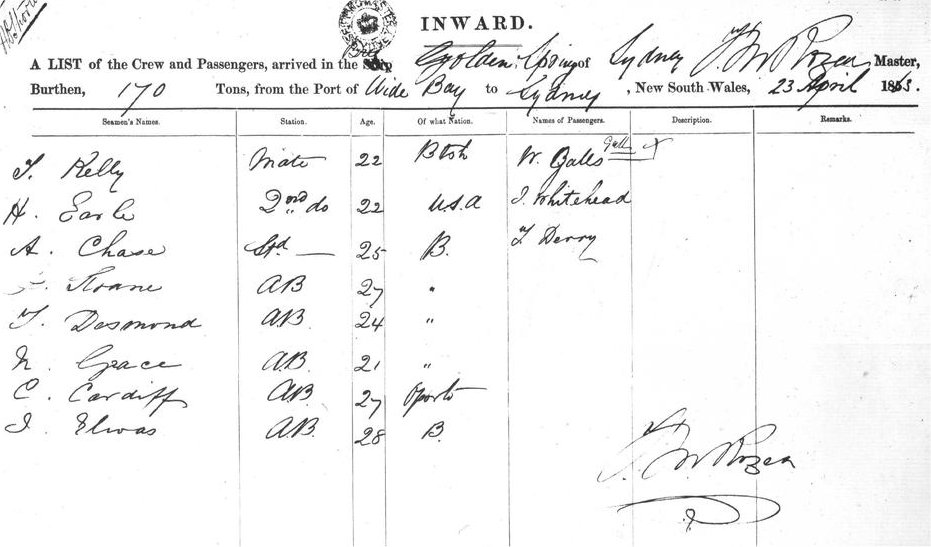 INWARD.
A LIST of the Crew and Passengers, arrived in the Ship Golden Spring of Sydney Master,
Burthen, 170 Tons, from the Port of Wide Bay to Sydney, New South Wales, 23 April 1863.
Seamen's Names. Station. Age. Of what Nation. Names of Passengers. Description. Remarks.
T. Kelly Mate 22 Btsh W. Galls
H. Earle 2nd do 22 U.S.A J. Whitehead
A. Chase Std 25 B. T Derry
Sloane AB 27 "
T. Desmond A.B. 24 "
N. Grace A.B. 21 "
C. Cardiff A.B. 27 Oporto
J. Elwas A.B. 28 B.